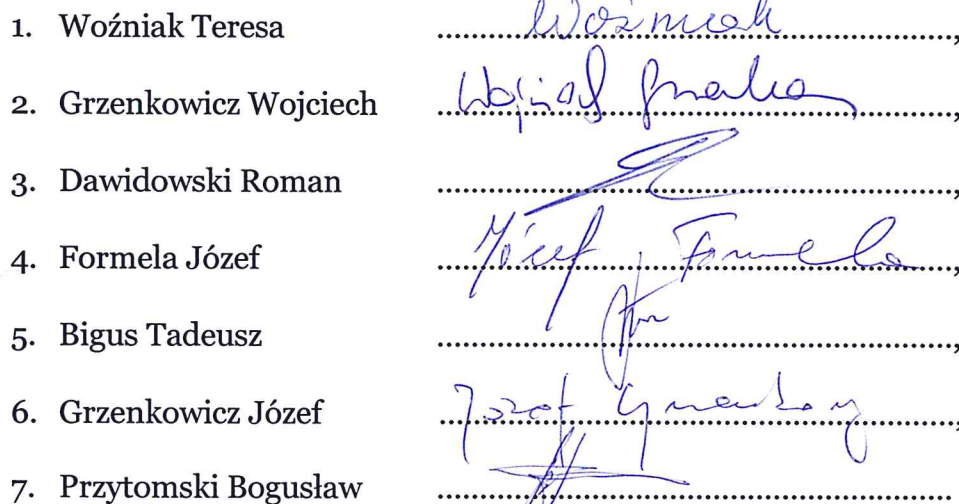 1. Woźniak Teresa ........................ Woźniak ........................,
2. Grzenkowicz Wojciech ........................ Wojciech ........................,
3. Dawidowski Roman ........................,
4. Formela Józef ........................ Józef Formela ........................,
5. Bigus Tadeusz ........................,
6. Grzenkowicz Józef ........................ Józef ........................,
7. Przytomski Bogusław ........................